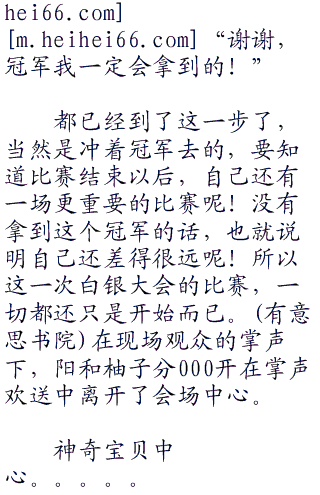 hei66.com]
[m.heihei66.com] “谢谢，
冠军我一定会拿到的！”
都已经到了这一步了，
当然是冲着冠军去的，要知
道比赛结束以后，自己还有
一场更重要的比赛呢！没有
拿到这个冠军的话，也就说
明自己还差得很远呢！所以
这一次白银大会的比赛，一
切都还只是开始而已。(有意
思书院)在现场观众的掌声
下，阳和柚子分000开在掌声
欢送中离开了会场中心。
神奇宝贝中
心。。。。。